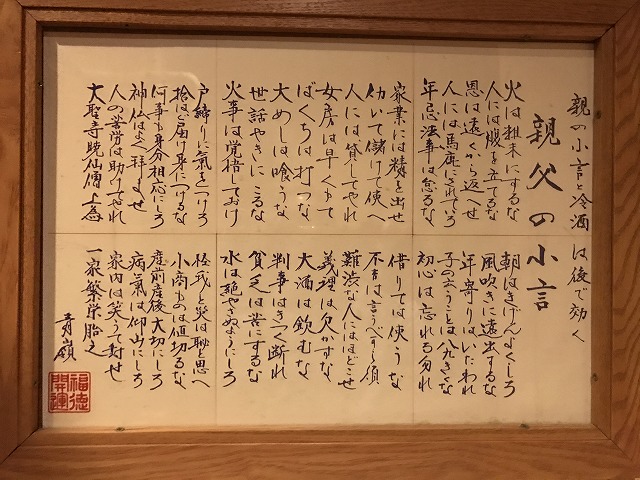 親の小言と冷酒は後で効く
親父の小言
火は粗末にするな
人には腹を立てるな
恩は遠くから返へせ
人には馬鹿にされていろ
年忌法事は怠るな
家業には精を出せ
仂いて儲けて使へ
人には貸してやれ
女房は早くもて
ばくちは打つな
大めしは喰うな
世話やきにこるな
火事は覚悟しておけ
戸締りに氣をつけろ
拾はば届け身につけるな
何事も身分相応にしろ
神仏はよく拝ませ
人の苦労は助けてやれ
大聖寺暁仙僧上為
朝はきげんよくしろ
風吹きに遠出するな
年寄りはいたわれ
子の云うことは八九きくな
初心は忘れる勿れ
借りては使うな
不吉は言うべからず
難渋な人にはほどこせ
義理は欠かすな
大酒は飲むな
判事はきつく断れ
貧乏は苦にするな
水は絶やさぬようにしろ
怪我と災は恥と思へ
小商ものは値切るな
産前産後大切にしろ
病氣は仰山にしろ
家内は笑うて暮せ
一家繁栄
青嶺
福徳
開運